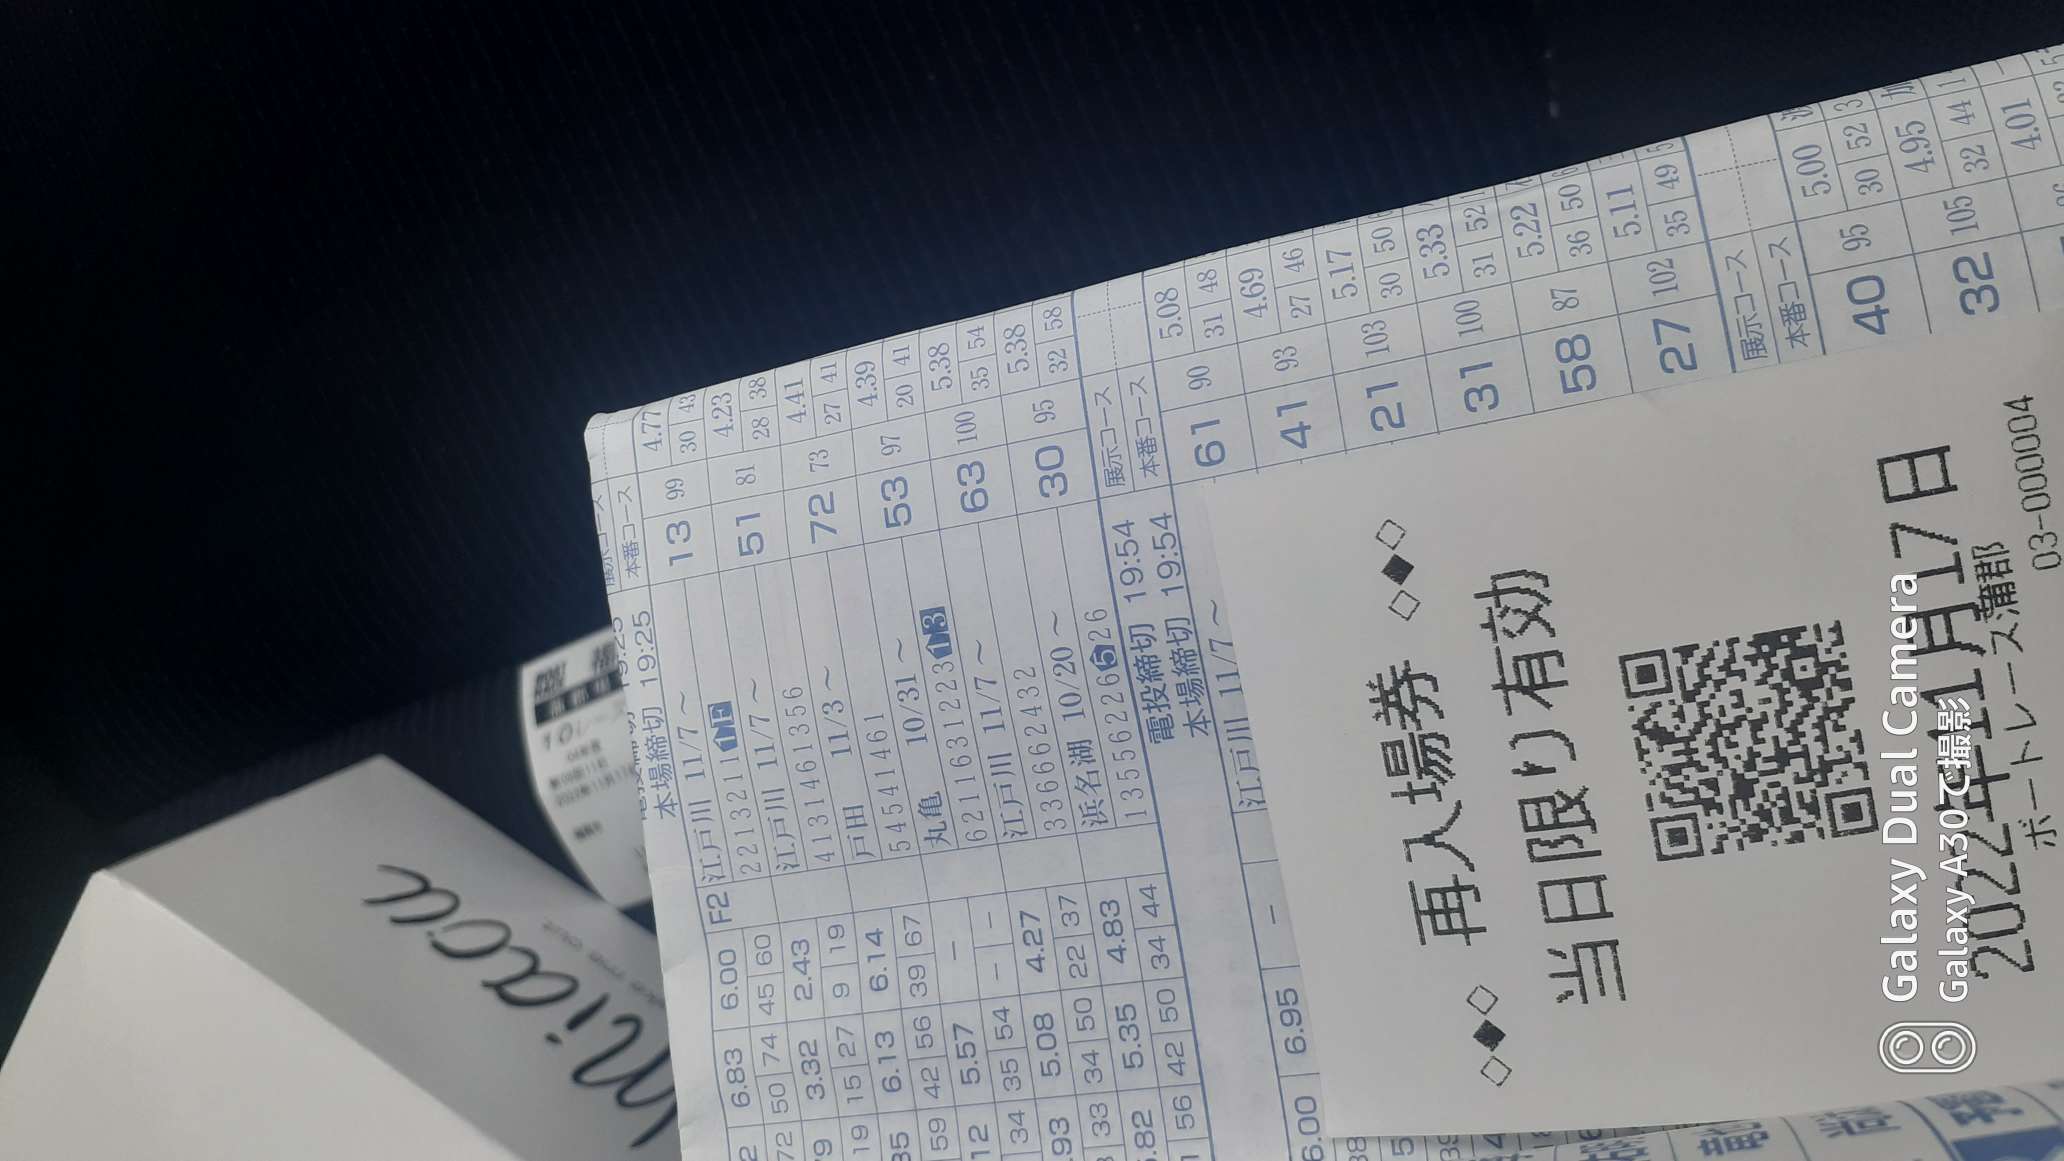 展示コース
本番コース
本場締切 19:25
13 99 4.77 30 43
51 81 4.23 28 38
72 73 4.41 27 41
53 97 4.39 20 41
63 100 5.38 35 54
30 95 5.38 32 58
6.83 6.00 F2 江戸川 11/7～
50 74 45 60 2213211
3.32 2.43 江戸川 11/7～
15 27 9 19 4131461356
6.13 6.14 戸田 11/3～
42 56 39 67 54541461
5.57 - 丸亀 10/31～
35 54 - - 6211631223
5.08 4.27 江戸川 11/7～
34 50 22 37 336662432
5.35 4.83 浜名湖 10/20～
42 50 34 44 13556226526
電投締切 19:54
本場締切 19:54
展示コース
本番コース
61 90 5.08 31 48
41 93 4.69 27 46
21 103 5.17 30 50
31 100 5.33 31 52
58 87 5.22 36 50
27 102 5.11 35 49
6.00 6.95 - 江戸川 11/7～
展示コース
本番コース
40 95 5.00 30 52
32 105 4.95 32 44
4.01
◇◆◇ 再入場券 ◇◆◇
当日限り有効
2022年11月17日
ボートレース蒲郡
03-000004
miaou
Galaxy Dual Camera
Galaxy A30で撮影